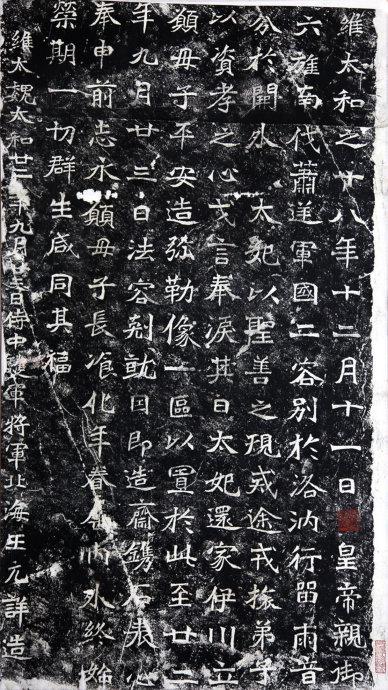 維太和之廿八年十二月十一日 皇帝親御
六旌南伐蕭逆軍國二容別於洛汭行留兩音
分於闕外 太妃以聖善之規戒途戒旅弟子
以資孝之心戈言奉淚其日太妃還家伊川立
願母子平安造弥勒像一區以置於此至廿二
年九月廿三日法容剋就因即造齋鐫石表心
奉申前志永願母子長飡化年眷屬內外終始
榮期一切群生咸同其福
維大魏太和廿二年九月廿三日侍中護軍將軍北海王元詳造